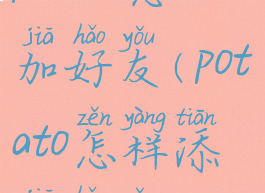 jiā hǎo yǒu
加好友(pot
zěn yàng tiān
ato怎样添